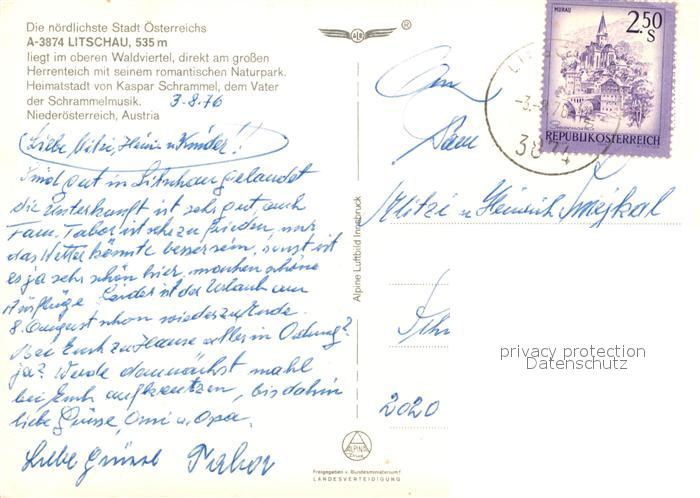 Die nördlichste Stadt Österreichs
A-3874 LITSCHAU, 535 m
liegt im oberen Waldviertel, direkt am großen
Herrenteich mit seinem romantischen Naturpark.
Heimatstadt von Kaspar Schrammel, dem Vater
der Schrammelmusik.
Niederösterreich, Austria
3-8-76
Liebe Mitzi, Heini u Kinder!
Sind gut in Litschau gelandet
die Unterkunft ist sehr gut auch
Fam. Tabor ist sehr zufrieden, nur
das Wetter könnte besser sein, sonst ist
es ja sehr schön hier, machen schöne
Ausflüge. Leider ist der Urlaub am
8. August schon wieder zu Ende.
Bei Euch zu Hause alles in Ordnung?
ja? Werde demnächst mahl
bei Euch aufkreutzen, bis dahin
liebe Grüsse, Omi u. Opa.
Liebe Grüsse Tabor
Alpine Luftbild Innsbruck
ALPINE
Freigegeben v. Bundesministerium f.
LANDESVERTEIDIGUNG
®
MURAU
2.50
S
REPUBLIK ÖSTERREICH
3874
An
Fam
Mitzi u Heinrich Smejkal
2020
privacy protection
Datenschutz